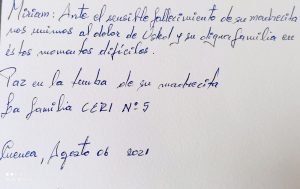 Miriam: Ante el sensible fallecimiento de su madrecita
nos unimos al dolor de Usted y su digna familia en
éstos momentos difíciles.
Paz en la tumba de su madrecita
La familia CERI Nº 5
Cuenca, Agosto 06 2021